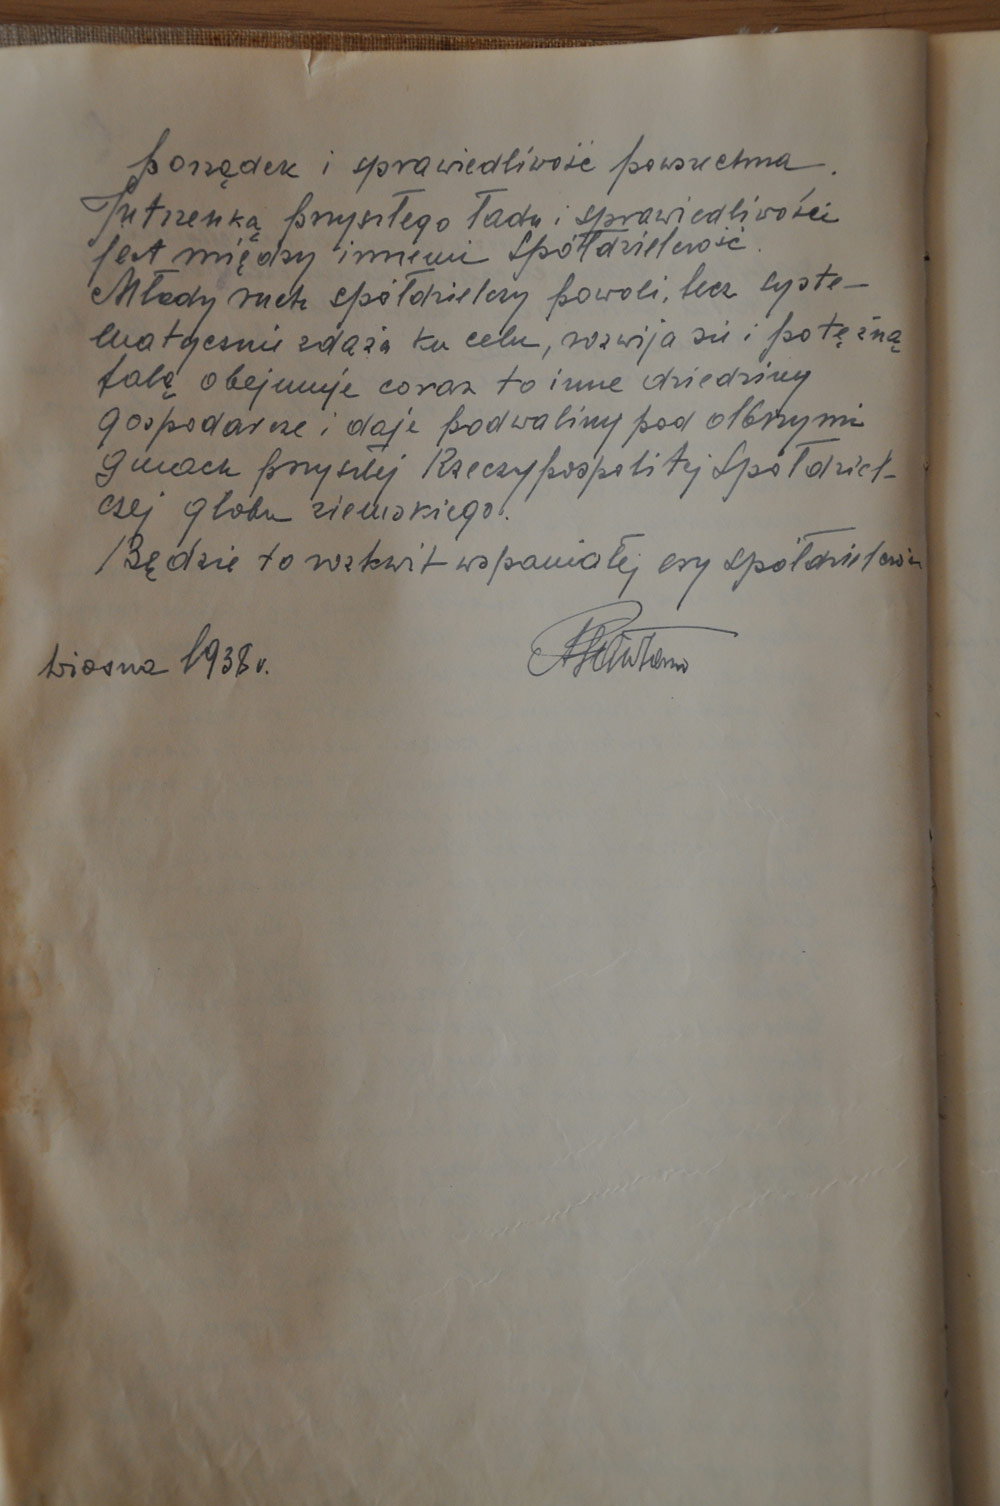 porządek i sprawiedliwość powszechna.
Jutrzenką przyszłego ładu i sprawiedliwości
jest między innemi Spółdzielczość.
Młody ruch spółdzielczy powoli, lecz syste-
matycznie zdąża ku celu, rozwija się i potężną
falą obejmuje coraz to inne dziedziny
gospodarcze i daje podwaliny pod olbrzymi
gmach przyszłej Rzeczypospolitej Spółdziel-
czej globu ziemskiego.
Będzie to rozkwit wspaniałej ery spółdzielczości
wiosna 1938 r.